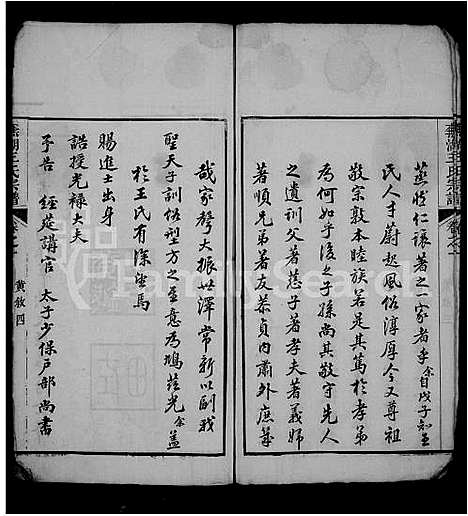 燕憘仁讓著之一家者乎余自戊子知玉
民人才蔚起風俗淳厚今又尊祖
敬宗敦本睦族若是其篤於孝弟
為何如乎後之子孫尚其敬守先人
之遺訓父著慈子著孝夫著義婦
著順兄弟著友恭貞內肅外庶幾
哉家聲大振世澤常新以副我
聖天子訓俗型方之至意為鳩茲光余蓋
於王氏有深望焉
賜進士出身
誥授光祿大夫
予告 經筵講官 太子少保戶部尚書
黃敘四
湖王氏宗譜
FamilySearch